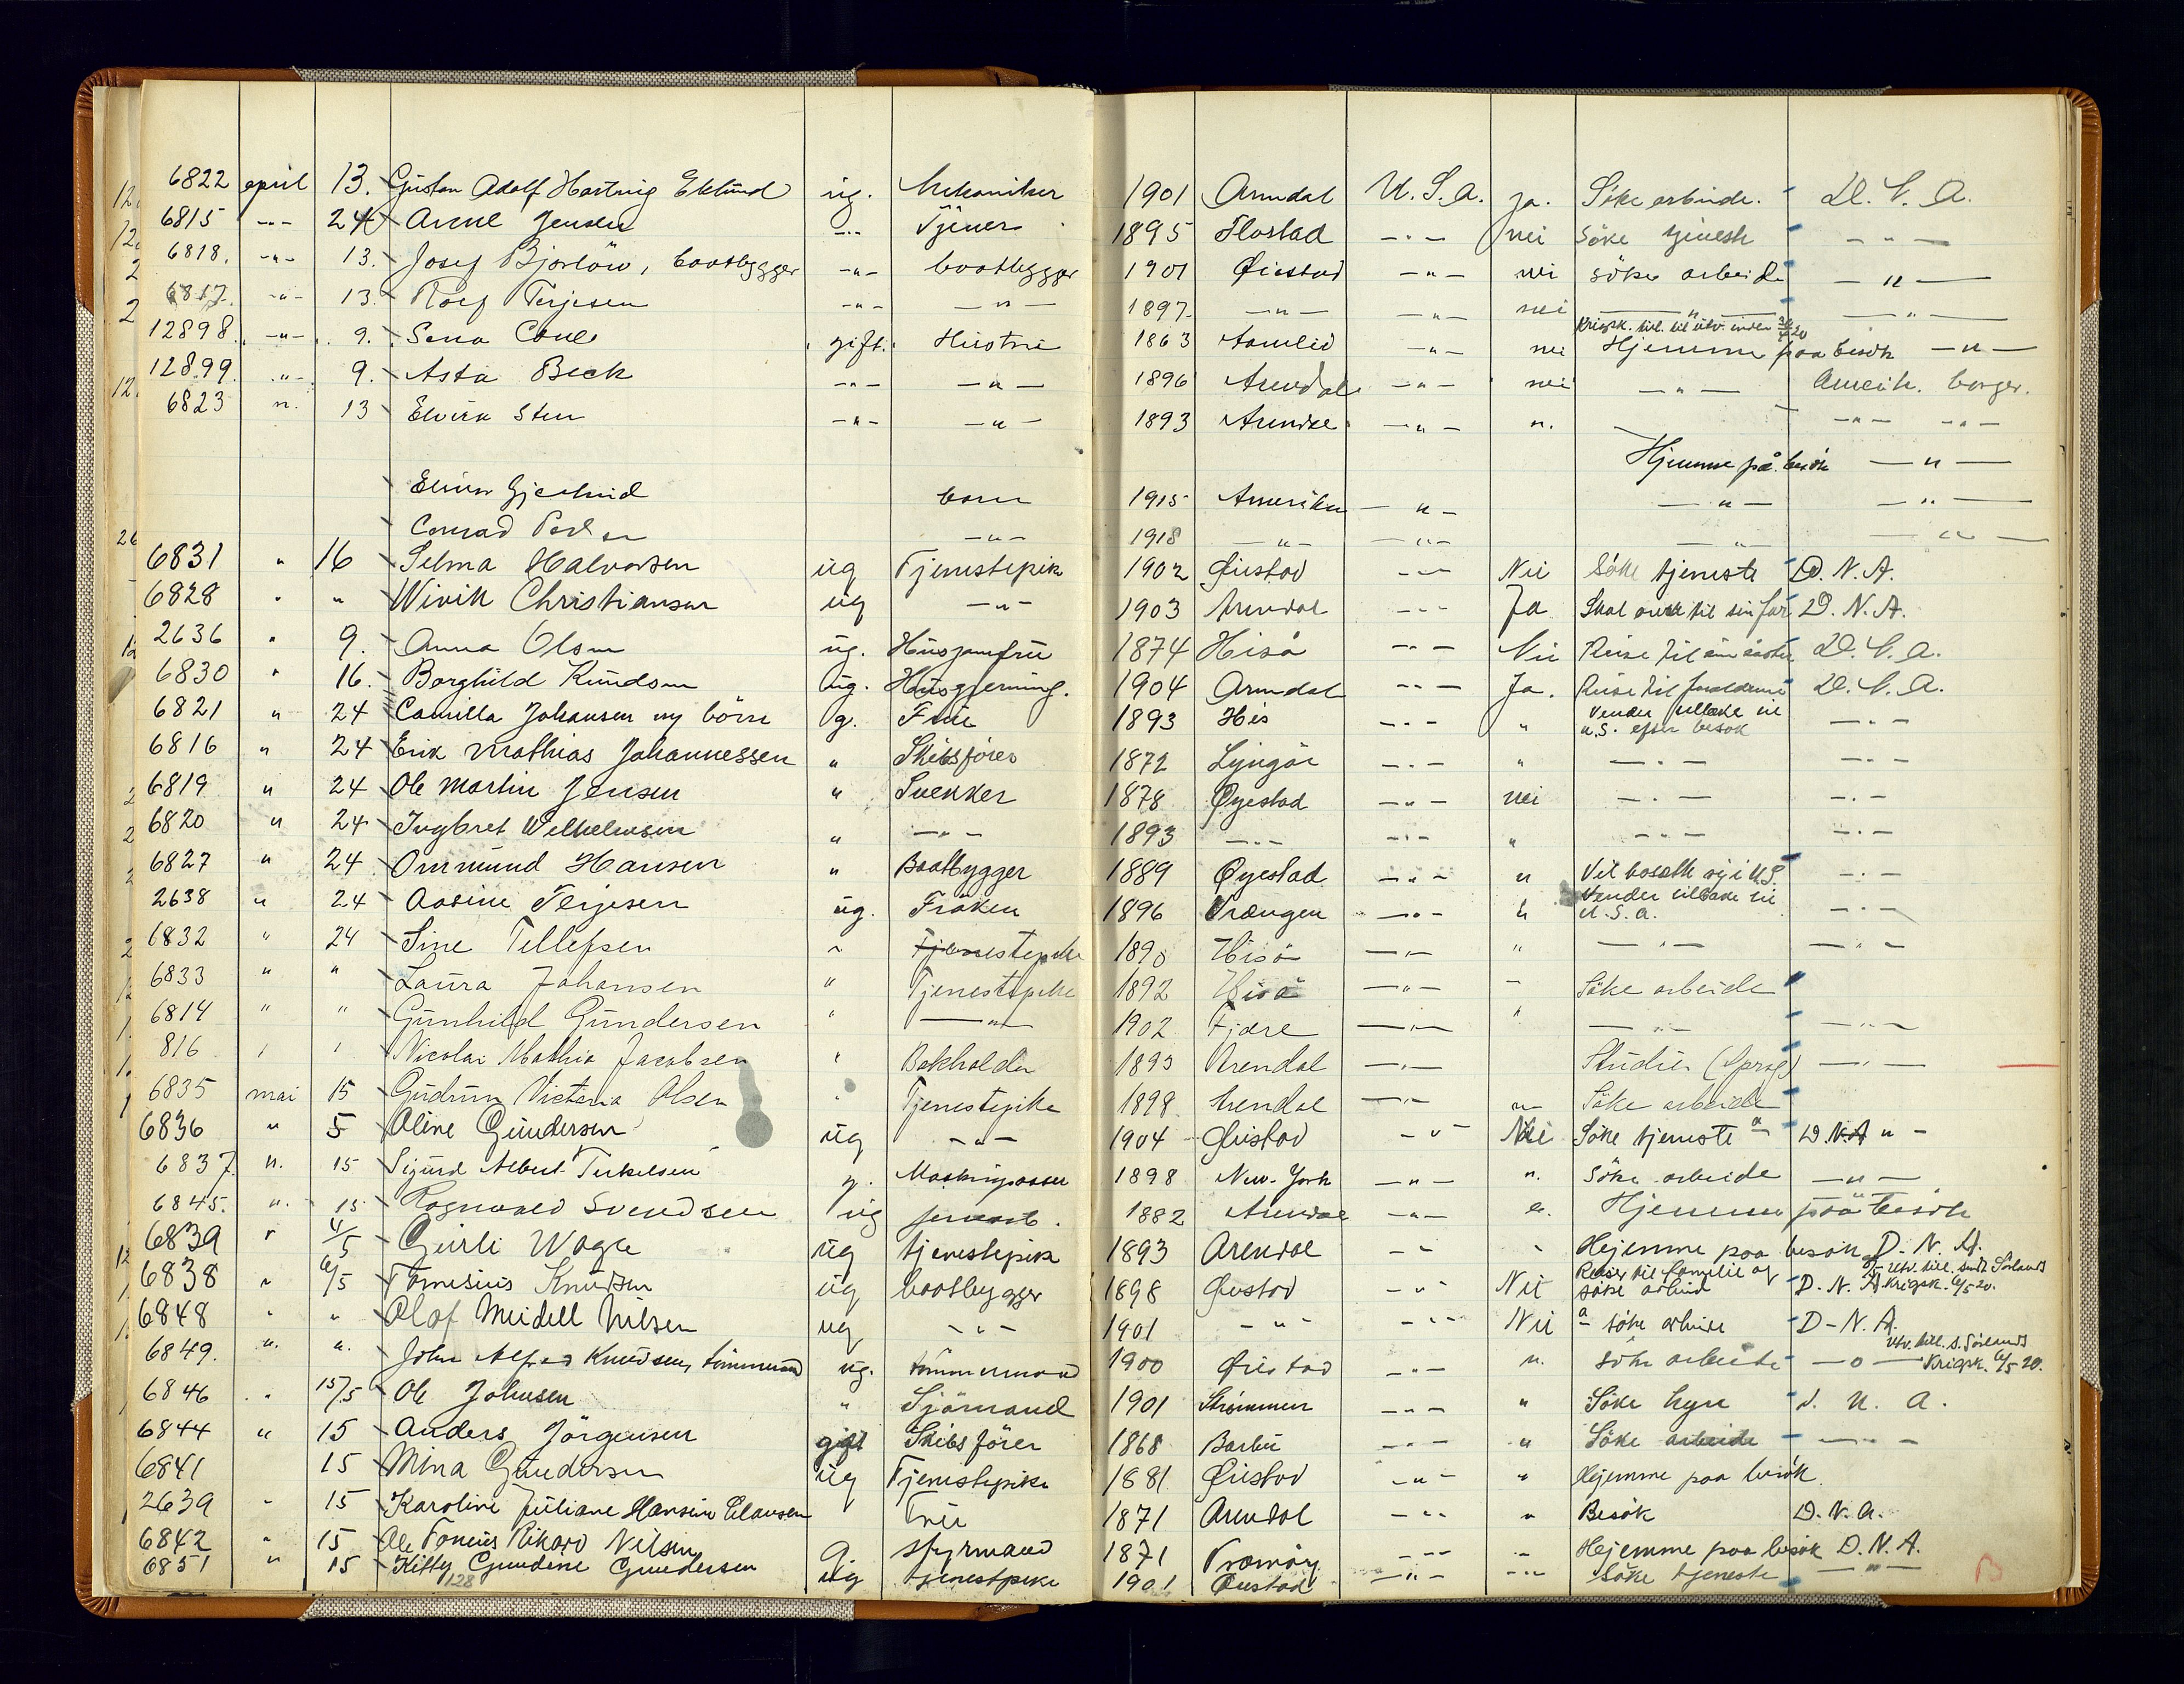 6822 april 13. Gustav Adolf Hartvig Eklund ug. Mekaniker 1901 Arendal U.S.A. ja. Söke arbeide. D. N. A.
6815 -"- 24 Arne Jensen -"- Tjener 1895 Flostad -"- nei Söke tjeneste -"-
6818. -"- 13. Josef Bjorlöw, baatbygger -"- baatbygger 1901 Öiestad -"- nei söke arbeide -"-
6817. -"- 13. Rolf Terjesen -"- -"- 1897 -"- -"- nei -"- -"-
Krigsk. till. til utv. inden 30/4 20
12898. -"- 9. gift. Hustru 1863 Aamlid -"- nei Hjemme paa besök -"-
12899. -"- 9. Asta Beck -"- -"- 1896 Arendal -"- nei -"- Amerik. borger.
6823 ". 13 Elvira Sten -"- -"- 1893 Arendal -"- ". -"- -"-
Hjemme på besök -"-
barn 1915 Amerika -"- -"- -"-
Conrad -"- 1918 -"- -"- -"- -"-
6831 " 16 Selma Halvorsen ug Tjenestepike 1902 Öiestad -"- Nei Söke tjeneste D. N. A.
6828 " " Wivik Christiansen ug -"- 1903 Arendal -"- Ja Skal til sin far D. N. A.
2636 " 9. Anna Olsen ug. Husjomfru 1874 Hisö -"- Nei Reise til sin söster D. N. A.
6830 " 16. Borghild Knudsen ug. Husgjerning. 1904 Arendal -"- Ja. Reise til foreldrene D. N. A.
6821 " 24 Camilla Johansen og börn g. Frue 1893 His -"- " Vender tilbake til -"-
U.S. efter besök
6816 " 24 Erik Mathias Johannessen " Skibsförer 1872 Lyngör -"- " -"- -"-
6819 " 24 Ole Martin Jensen " Snekker 1878 Öyestad -"- nei -"- -"-
6820 " 24 Ingbret Wilhelmsen " -"- 1893 -"- -"- " -"- -"-
6827 " 24 Ommund Hansen " Baatbygger 1889 Öyestad -"- " Vil bosætte sig i U.S. -"-
2638 " 24 Aasine Terjesen ug. Fröken 1896 Vrængen -"- " Vender tilbake til -"-
U.S.A.
6832 " 24 Sine Tellefsen " Tjenestepike 1890 Hisö -"- " -"- -"-
6833 " " Laura Johansen " Tjenestepike 1892 Hisö -"- - Söke arbeide
6814 " " Gunhild Gundersen " -"- 1902 Fjære -"- " -"- -"-
816 " " Nicolai Mathia Jacobsen " Bokholder 1893 Arendal -"- Studier (Sprog) -"-
6835 mai 15 Gudrun Victoria Olsen " Tjenestepike 1898 Arendal -"- " Söke arbeide
6836 " 5 Aline Gundersen ug -"- 1904 Öiestad -"- Nei Söke tjeneste D. N. A -"-
6837 ". 15 Sigurd Albert Terkelsen g. Maskinpasser 1898 New-York -"- ". Söke arbeide -"-
6845. ". 15 Ragnvald Svendsen ug 1882 Arendal -"- ". Hjemme på besök
6839 " 4/5 Gurli Wagle ug tjenestepike 1893 Arendal -"- " Hjemme paa besök D. N. A.
6838 " 6/5 Tomesius Knudsen ug baatbygger 1898 Öiestad -"- Nei Reise til familie og söke arbeid D. N. A. Utv. till. Sörlands Krigsk. 6/5 20.
6848 " " Olaf Meidell Nilsen ug -"- 1901 -"- -"- Nei söke arbeide D-N. A.
6849. ". ". John Alfred Knudsen, tömmermand ug. tömmermand 1900 Öiestad -"- ". söke arbeide -"- Utv. till. s. Sörlands Krigsk. 6/5 20.
6846 " 15/5 Ole Johnsen " Sjömand 1901 Strömmen -"- " Söke hyre D. N. A.
6844 " 15 Anders Jörgensen gift Skibsförer 1868 Barbu -"- " Söke arbeide -"-
6841 15 Mina Gundersen ug Tjenestepike 1881 Öiestad -"- " Hjemme paa besök
2639 " 15 Karoline Juliane Hansine Clausen Frue 1871 Arendal -"- " Besök D. N. A.
6842 " 15 Ole Toneius Rikard Nilsen g. styrmand 1871 Tromöy -"- " Hjemme paa besök D. N. A.
6851 " 15 Kitty Gundine Gundersen ug tjenestepike 1901 Öiestad -"- -"- Söke tjeneste -"-
128
B